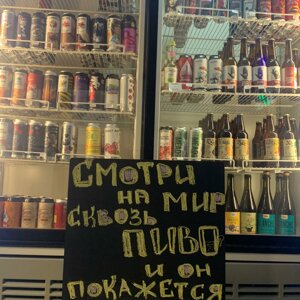 СМОТРИ
НА МИР
СКВОЗЬ
ПИВО
И ОН
ПОКАЖЕТСЯ